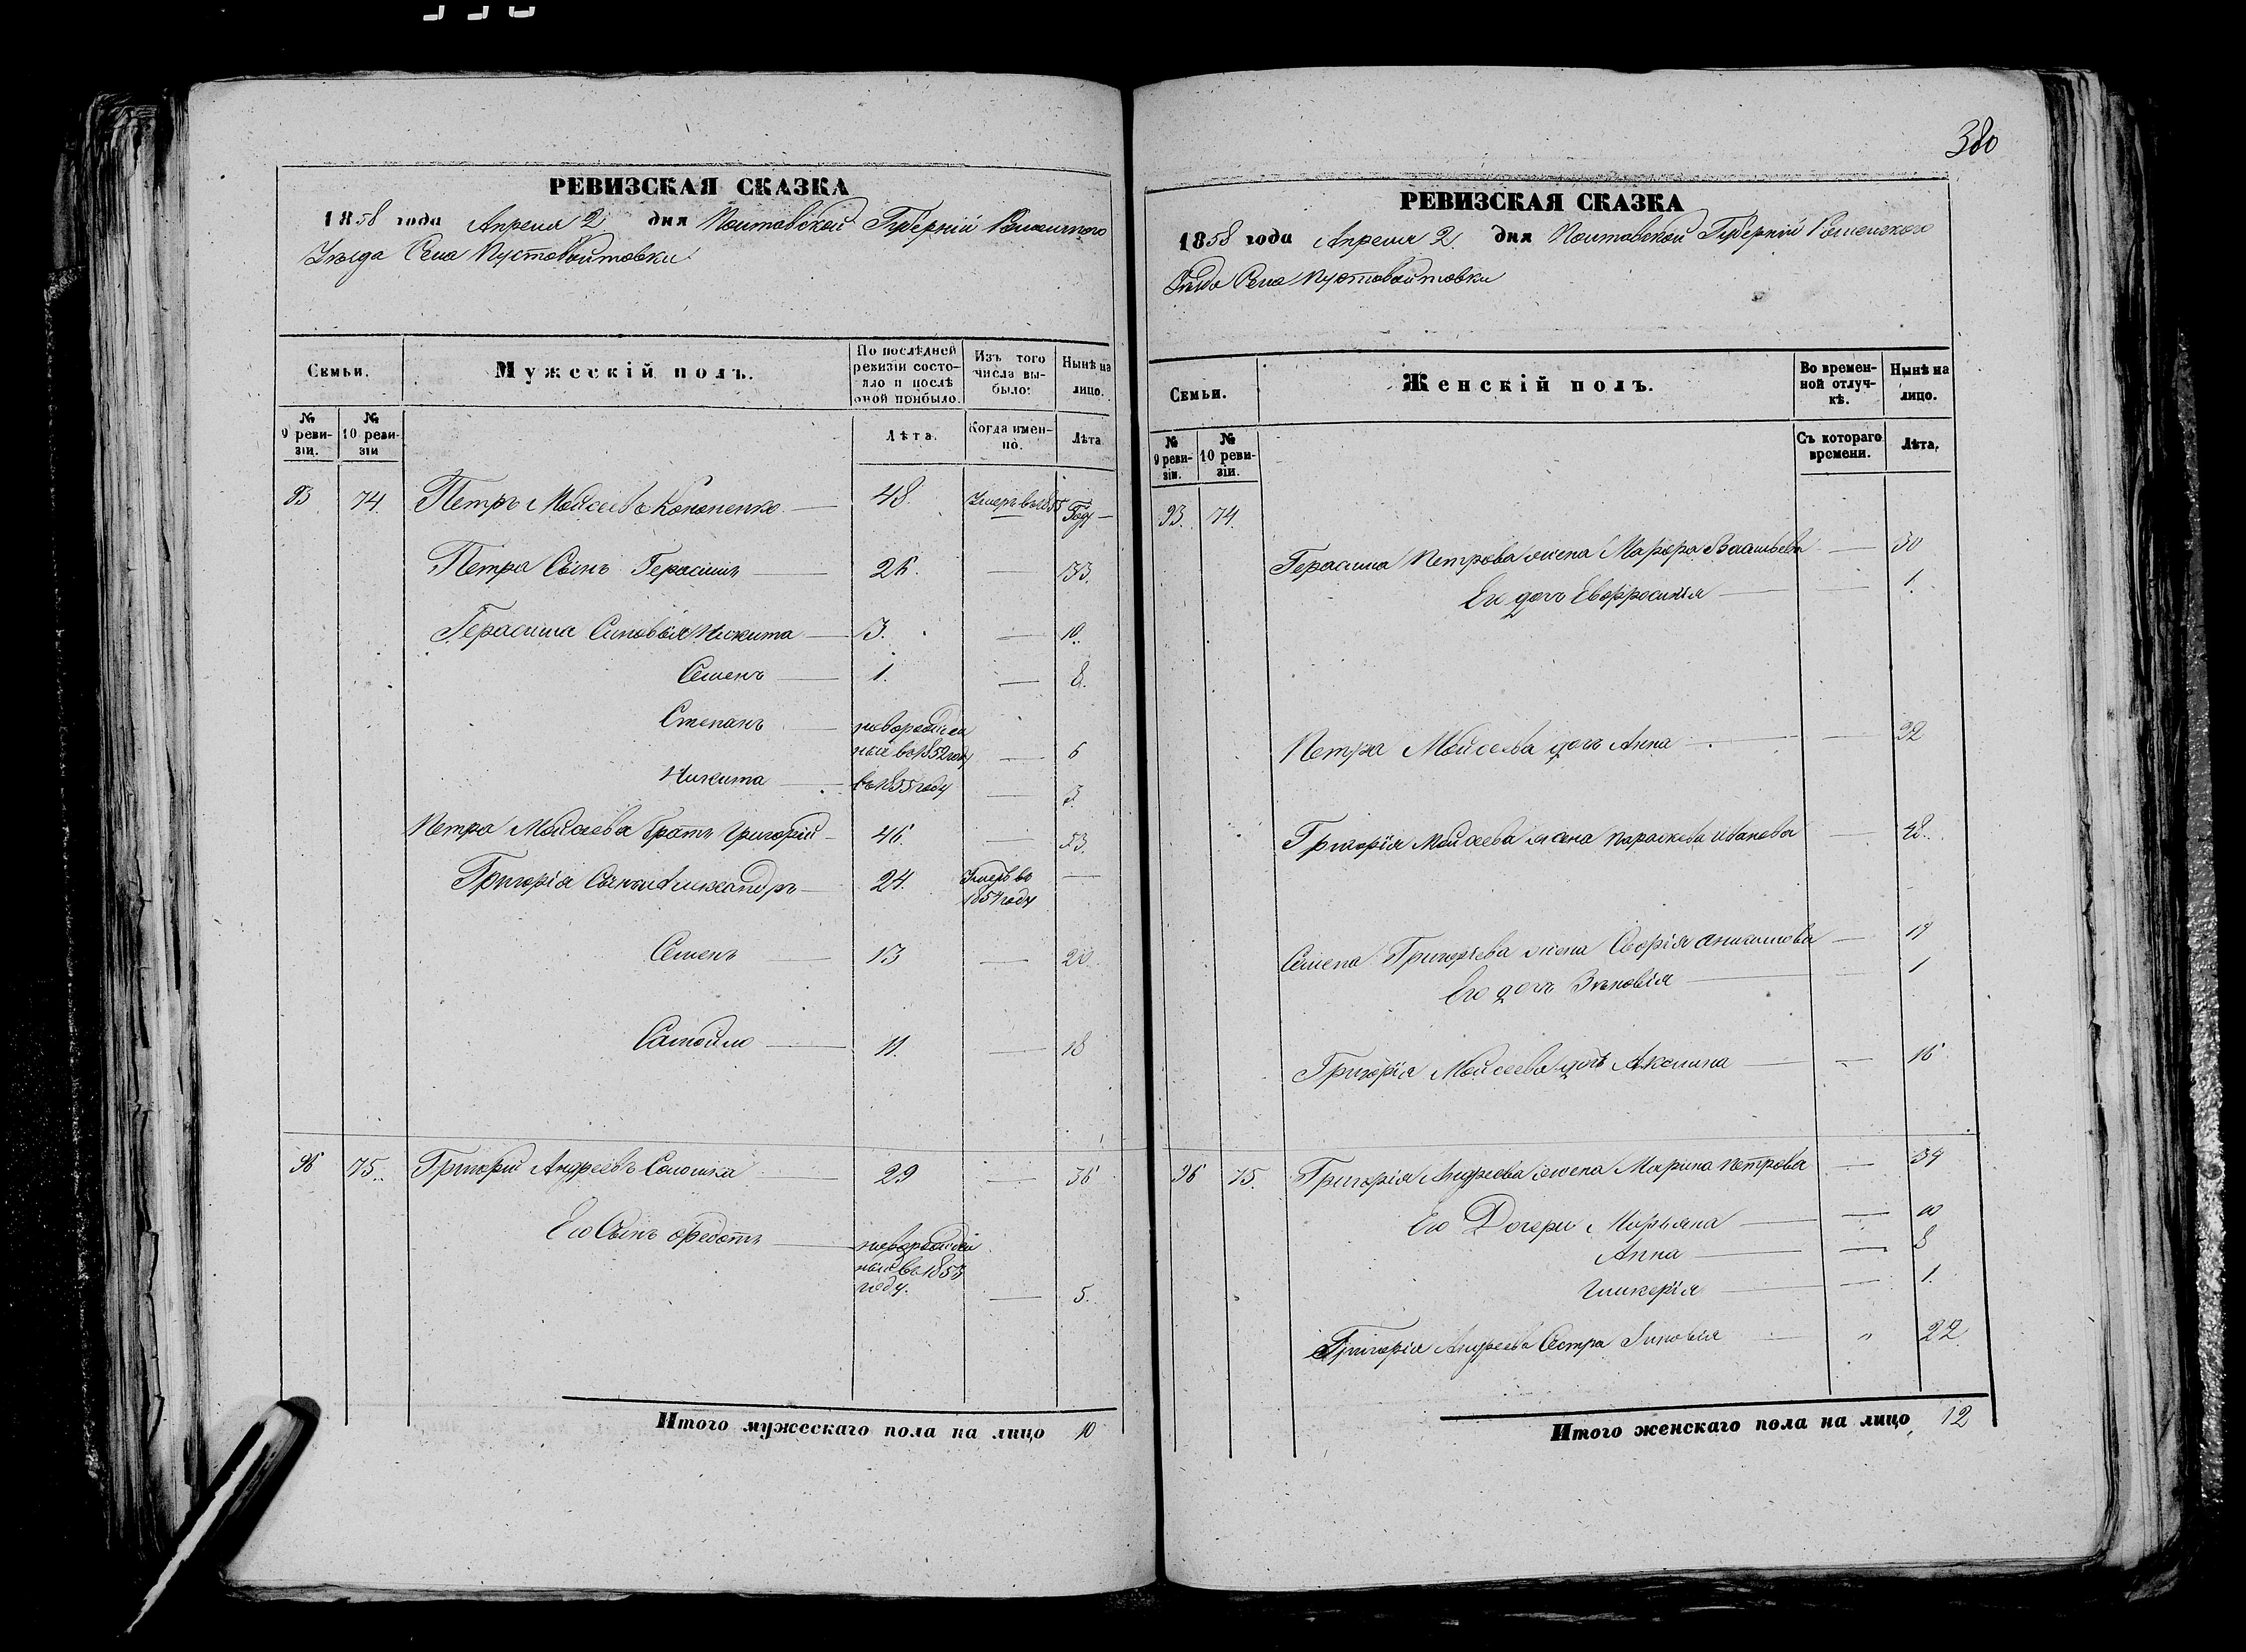 380
РЕВИЗСКАЯ СКАЗКА
1858 года Апреля 2 дня Полтавской Губерніи Роменского
Уезда Села Пустовойтовки
Семьи. Мужескій полъ. По послѣдней ревизіи состояло и послѣ оной прибыло. Изъ того числа выбыло: Нынѣ на лицо.
№ 9 ревизіи. № 10 ревизіи Лѣта. Когда именно. Лѣта
93 74. Петръ Мойсеевъ Кононенко 48. Умеръ въ 1855 Году
Петра Сынъ Герасимъ 26. 33.
Герасима Сыновья Никита 3. 10.
Семенъ 1. 8.
Степанъ новорожден
ный во 1852 году 6
Никита въ 1855 году 3.
Петра Мойсеева братъ Григорій 46. 53.
Григорія Сынъ Александръ 24. Умеръ во
1854 году
Семенъ 13 20.
Самойло 11. 18
96 75. Григорій Андреевъ Солошка 29 36
Его Сынъ Федотъ новорожден
ный во 1853
году. 5.
Итого мужескаго пола на лицо 10
РЕВИЗСКАЯ СКАЗКА
1858 года Апреля 2. дня Полтавской Губерніи Роменского
Уезда Села Пустовойтовки
Семьи. Женскій полъ. Во временной отлучкѣ. Нынѣ на лицо.
№ 9 ревизіи. № 10 ревизіи. Съ котораго времени. Лѣта.
93. 74.
Герасима Петрова жена Марфа Васильева 30
Его дочь Евфросинія 1.
Петра Мойсеева дочь Анна 32
Григорія Мойсеева жена Параскева Иванова 48.
Семена Григорьева жена Софія 19
Его дочь Зѣновія 1
Григорія Мойсеева дочь Акилина 16
96 75. Григорія Андреева жена Марина Петрова 34
Его Дочери Марьяна 10
Анна 8
Гликерія 1.
Григорія Андреева Сестра Зиновія " 22
Итого женскаго пола на лицо 12